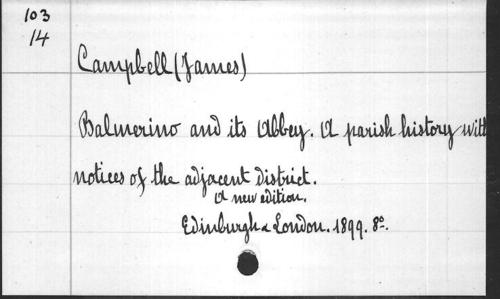 103
14
Campbell (James)
Balmerino and its Abbey. A parish history with
notices of the adjacent district.
A new edition.
Edinburgh & London. 1899. 8o.